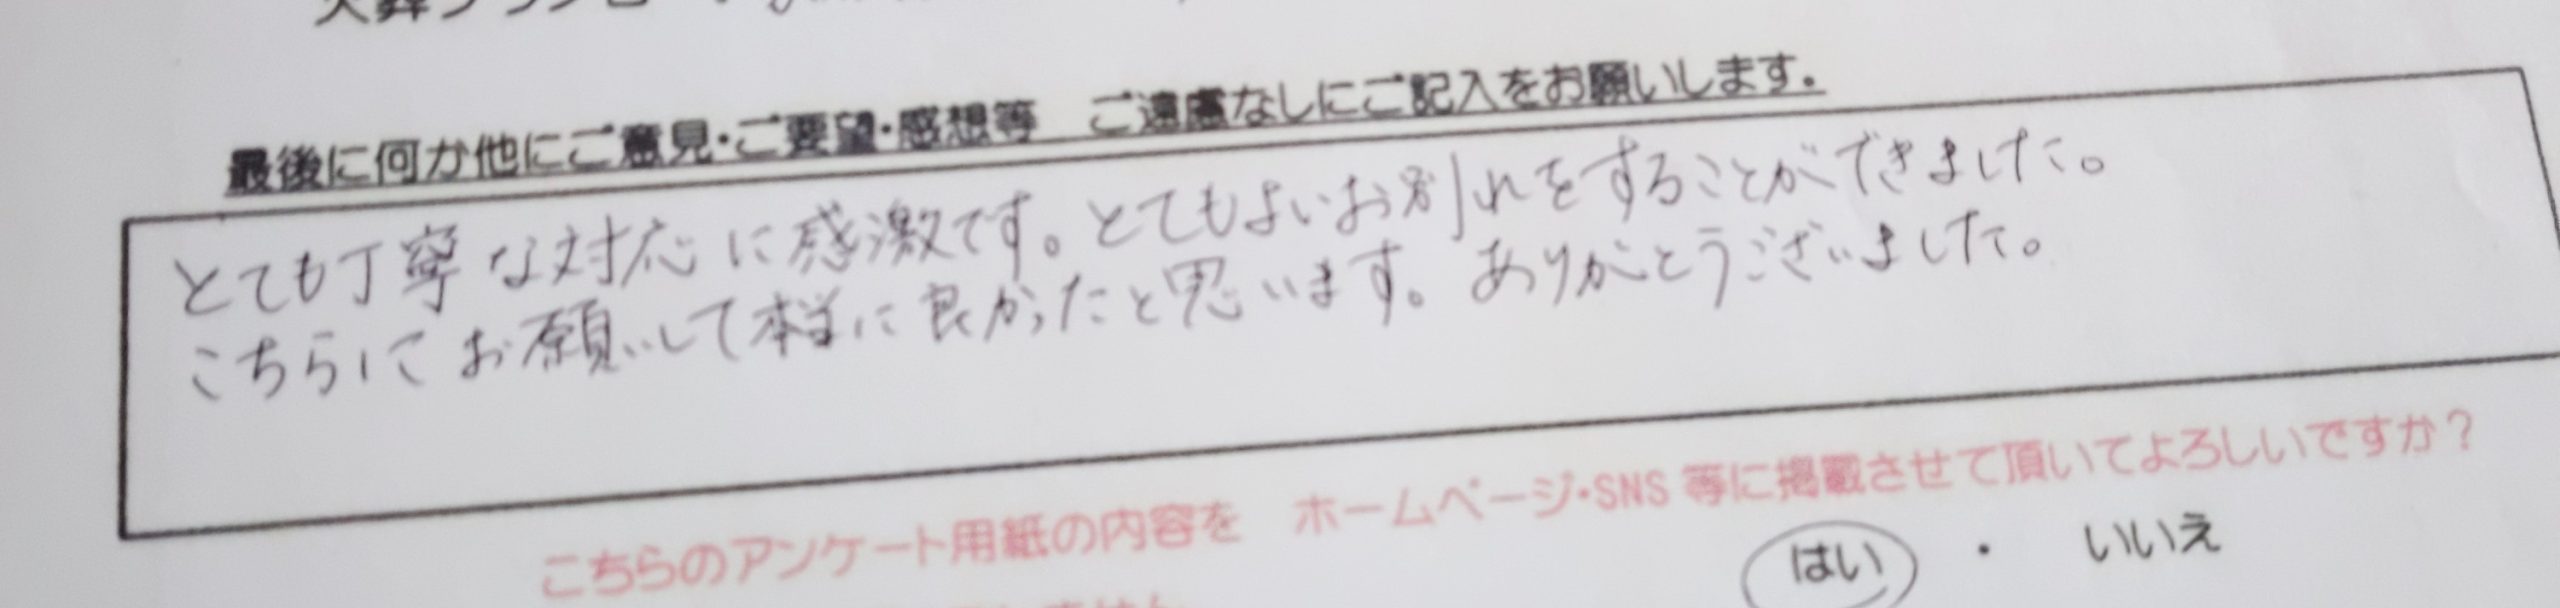 最後に何か他にご意見・ご要望・感想等　ご遠慮なしにご記入をお願いします.
とても丁寧な対応に感激です。とてもよいお別れをすることができました。
こちらにお願いして本当に良かったと思います。ありがとうございました。
こちらのアンケート用紙の内容を　ホームページ・SNS 等に掲載させて頂いてよろしいですか？
はい　・　いいえ